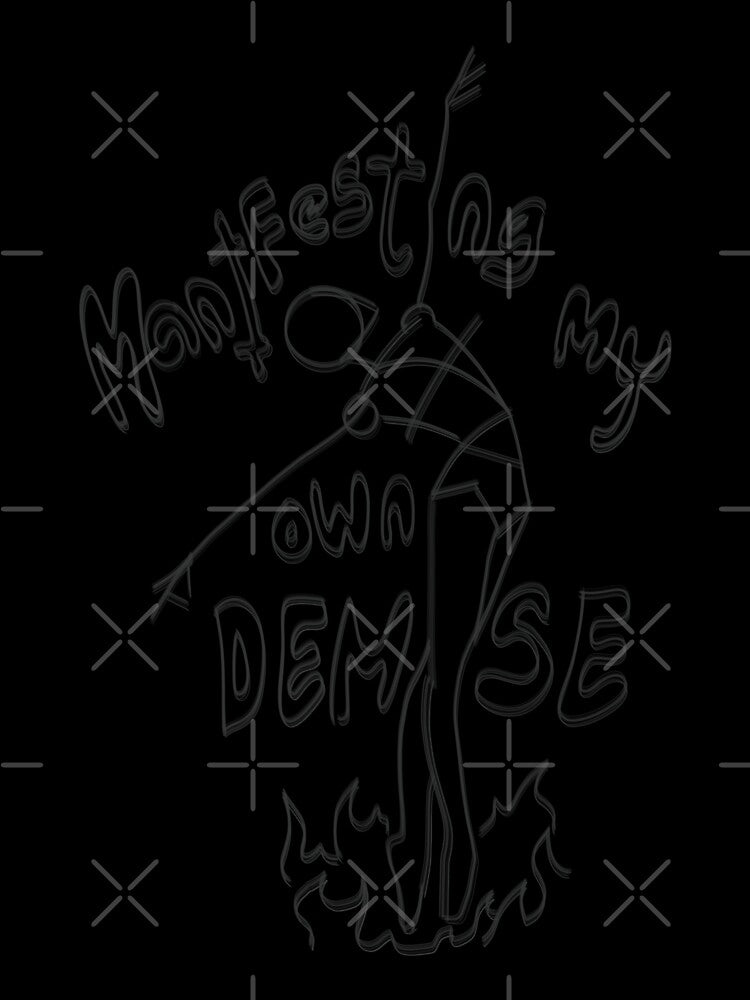 Manifesting my
own
DEMISE